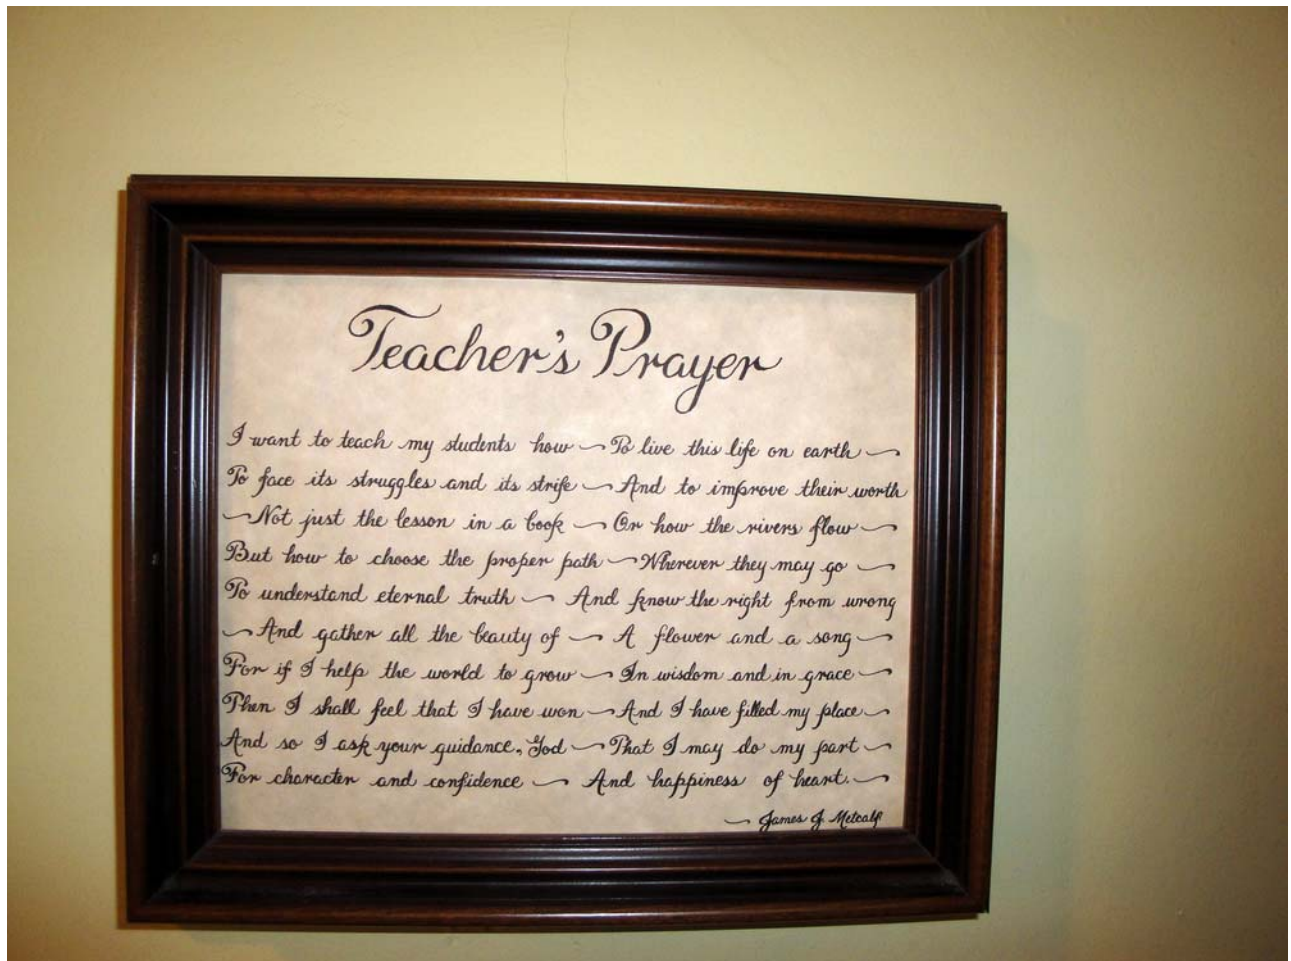 Teacher's Prayer
I want to teach my students how ~ To live this life on earth ~
To face its struggles and its strife ~ And to improve their worth
~ Not just the lesson in a book ~ Or how the rivers flow ~
But how to choose the proper path ~ Wherever they may go ~
To understand eternal truth ~ And know the right from wrong
~ And gather all the beauty of ~ A flower and a song ~
For if I help the world to grow ~ In wisdom and in grace ~
Then I shall feel that I have won ~ And I have filled my place ~
And so I ask your guidance, God ~ That I may do my part ~
For character and confidence ~ And happiness of heart. ~
~ James J. Metcalf